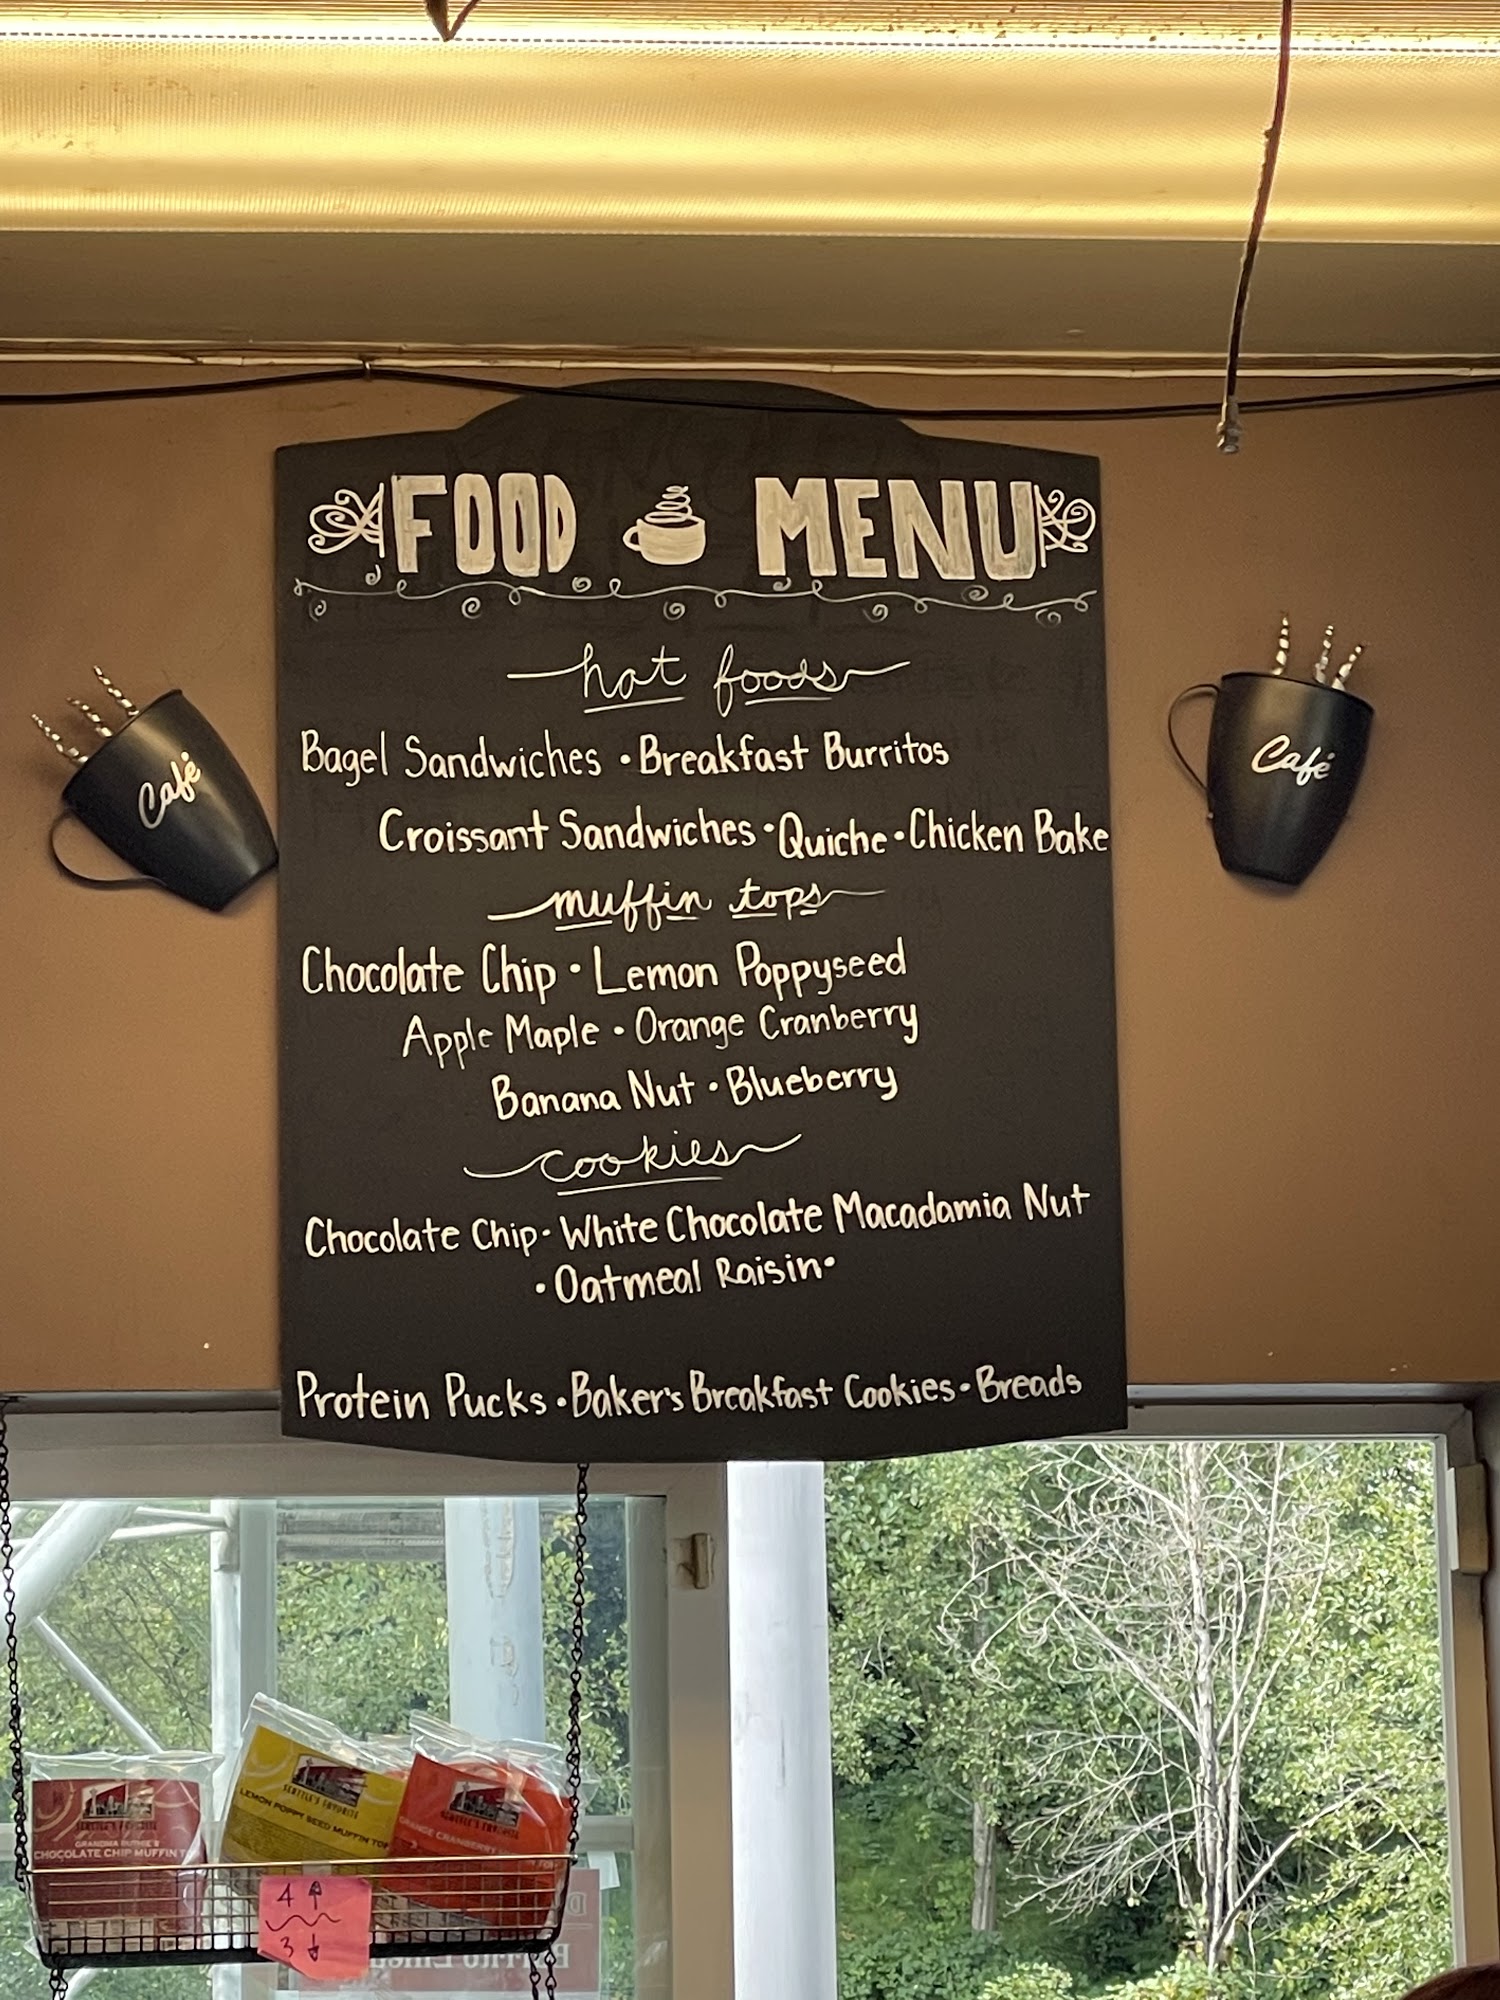 FOOD MENU
hot foods
Bagel Sandwiches • Breakfast Burritos
Croissant Sandwiches • Quiche • Chicken Bake
muffin tops
Chocolate Chip • Lemon Poppyseed
Apple Maple • Orange Cranberry
Banana Nut • Blueberry
cookies
Chocolate Chip • White Chocolate Macadamia Nut
• Oatmeal Raisin •
Protein Pucks • Baker's Breakfast Cookies • Breads
Café
Café
SEATTLE'S FAVORITE
GRANDMA RUTHIE'S
CHOCOLATE CHIP MUFFIN
SEATTLE'S FAVORITE
LEMON POPPY SEED MUFFIN TOP
SEATTLE'S FAVORITE
ORANGE CRANBERRY
4 ↑
3 ↓
Burrito